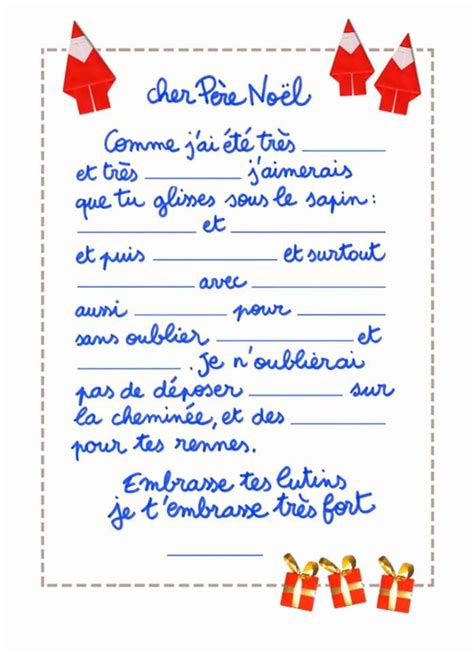 cher Père Noël
Comme j'ai été très ________
et très ________ j'aimerais
que tu glisses sous le sapin :
________ et ________
et puis ________ et surtout
________ avec ________
aussi ________ pour ________
sans oublier ________ et
________. Je n'oublierai
pas de déposer ________ sur
la cheminée, et des ________
pour tes rennes.
Embrasse tes lutins
je t'embrasse très fort
________